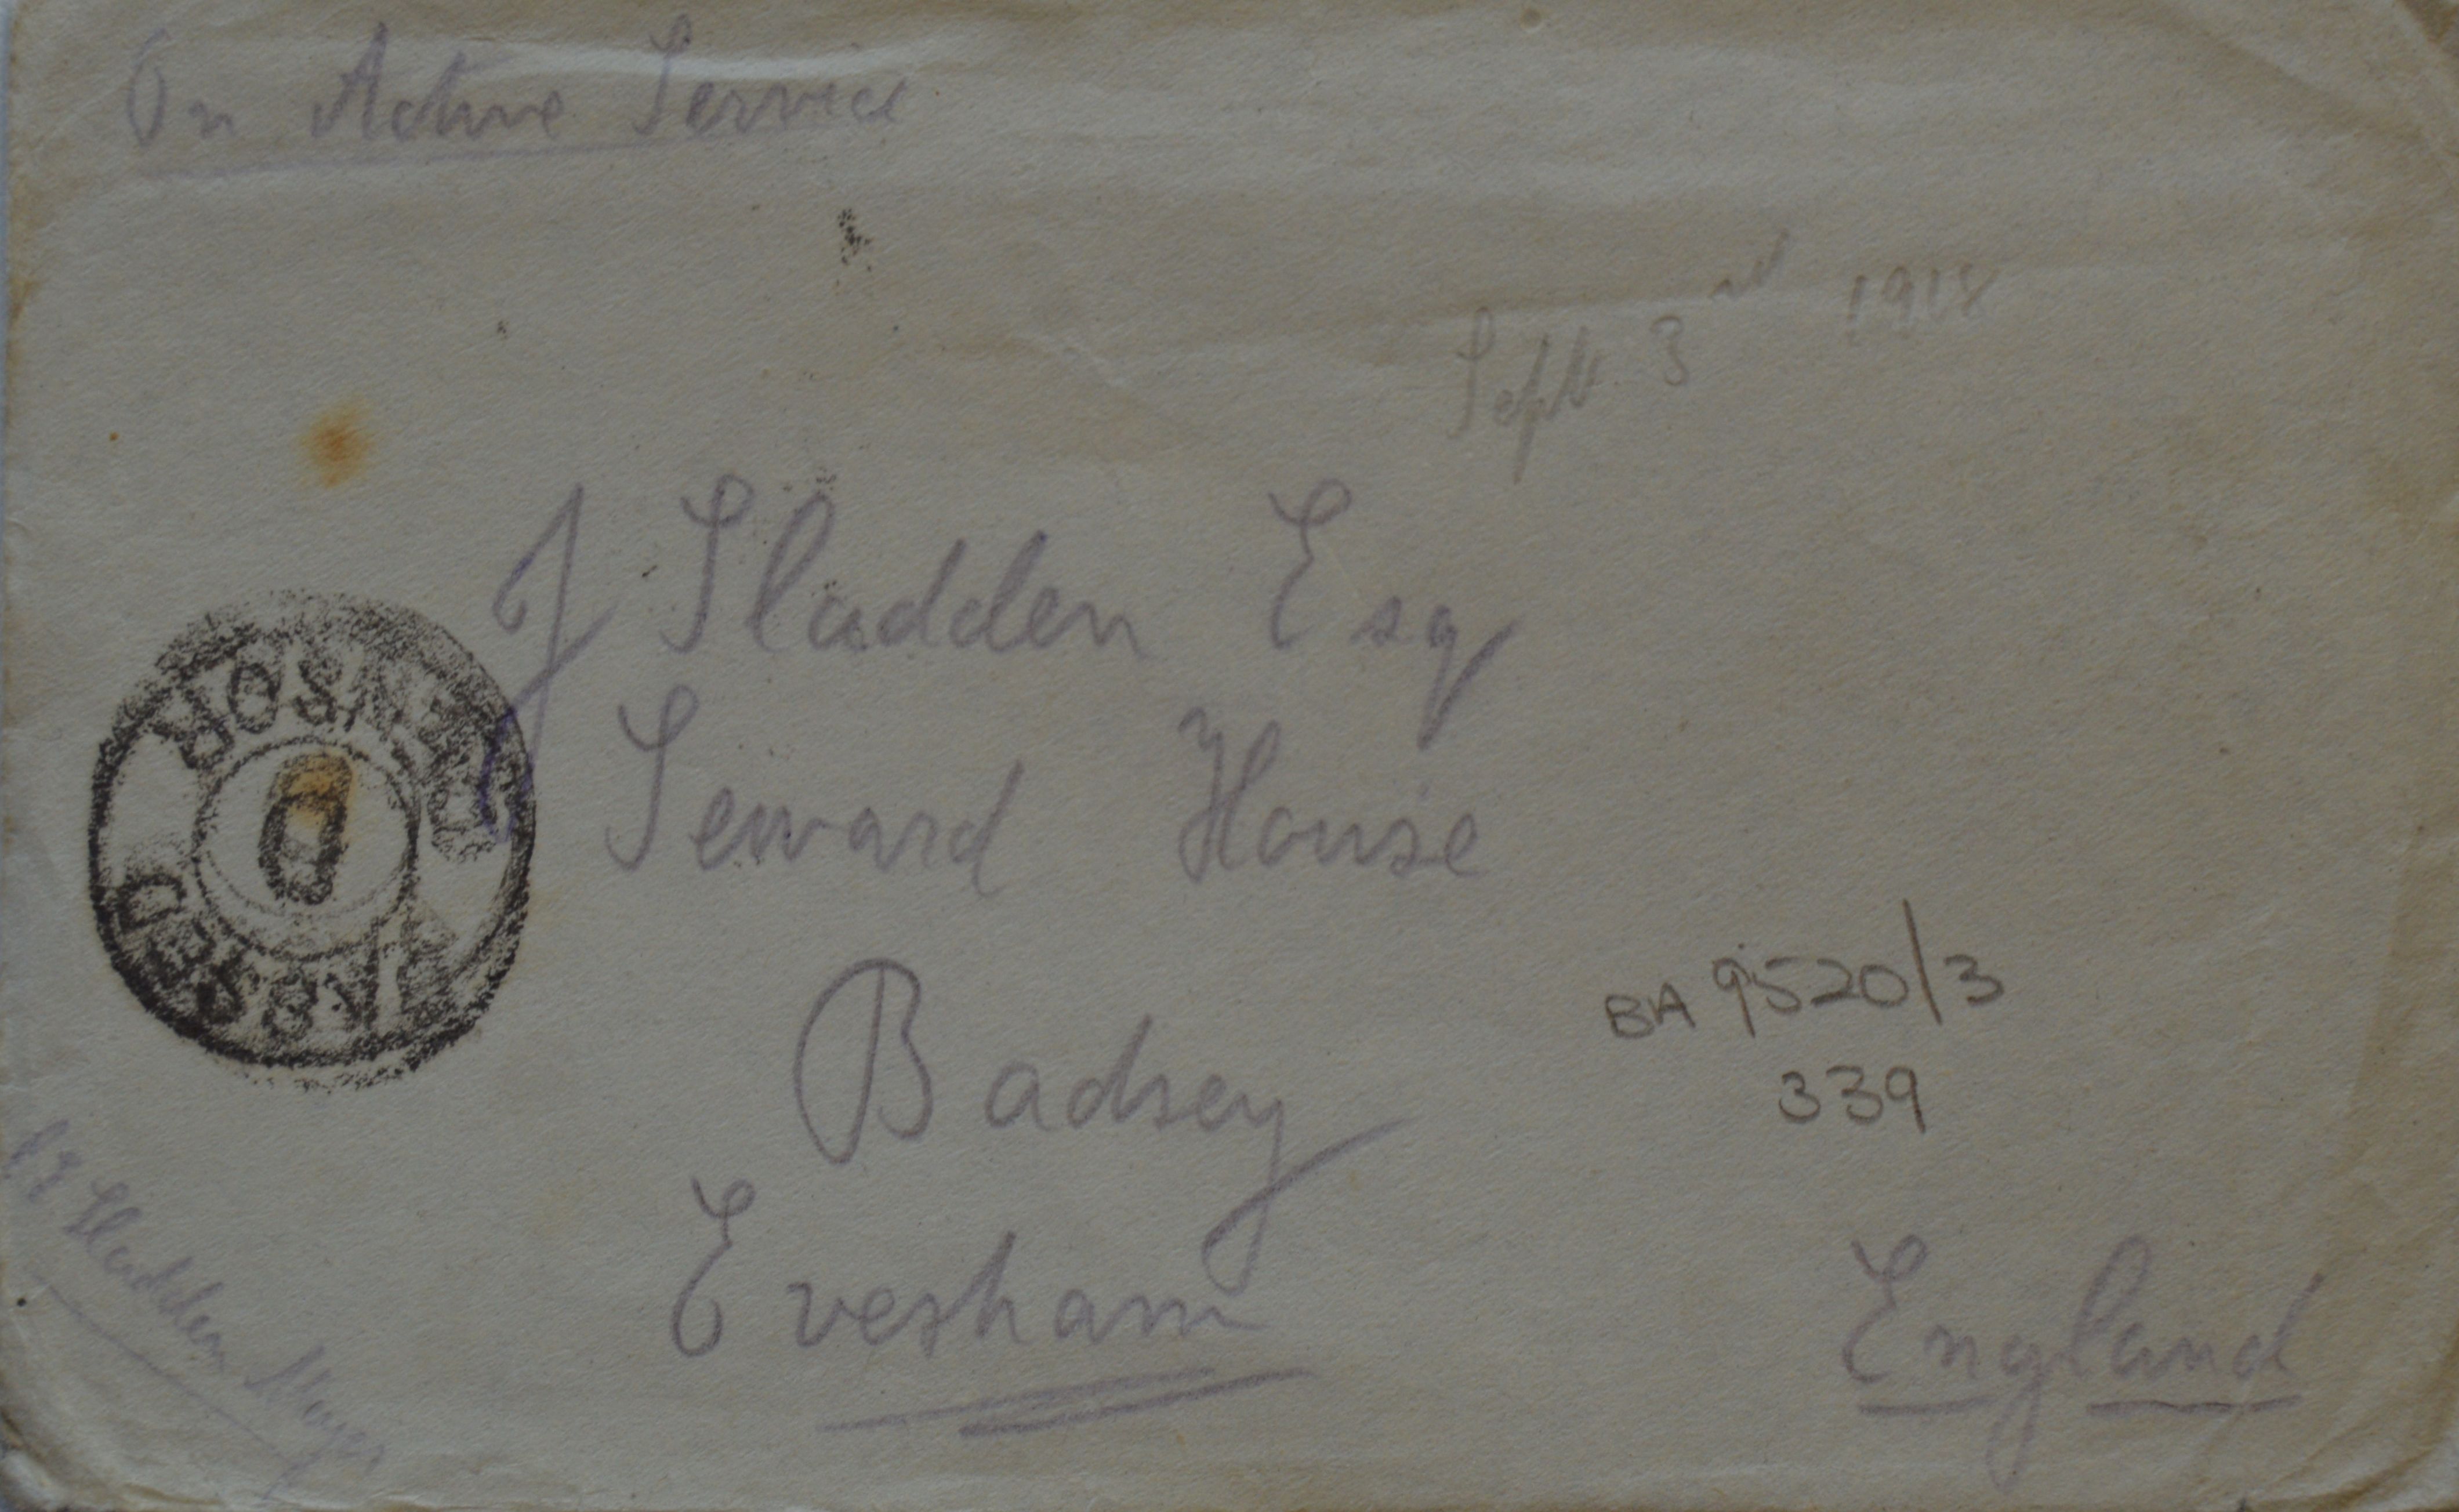 On Active Service
Septr 3rd 1918
J Sladden Esq
Seward House
Badsey
Evesham
England
BA 9520/3
339
Sladden Major